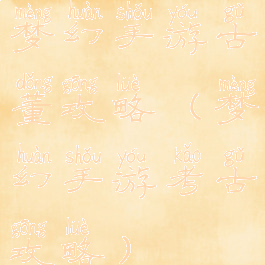 mèng huàn shǒu yóu gǔ
梦幻手游古
dǒng gōng lüè mèng
董攻略（梦
huàn shǒu yóu kǎo gǔ
幻手游考古
gōng lüè
攻略）